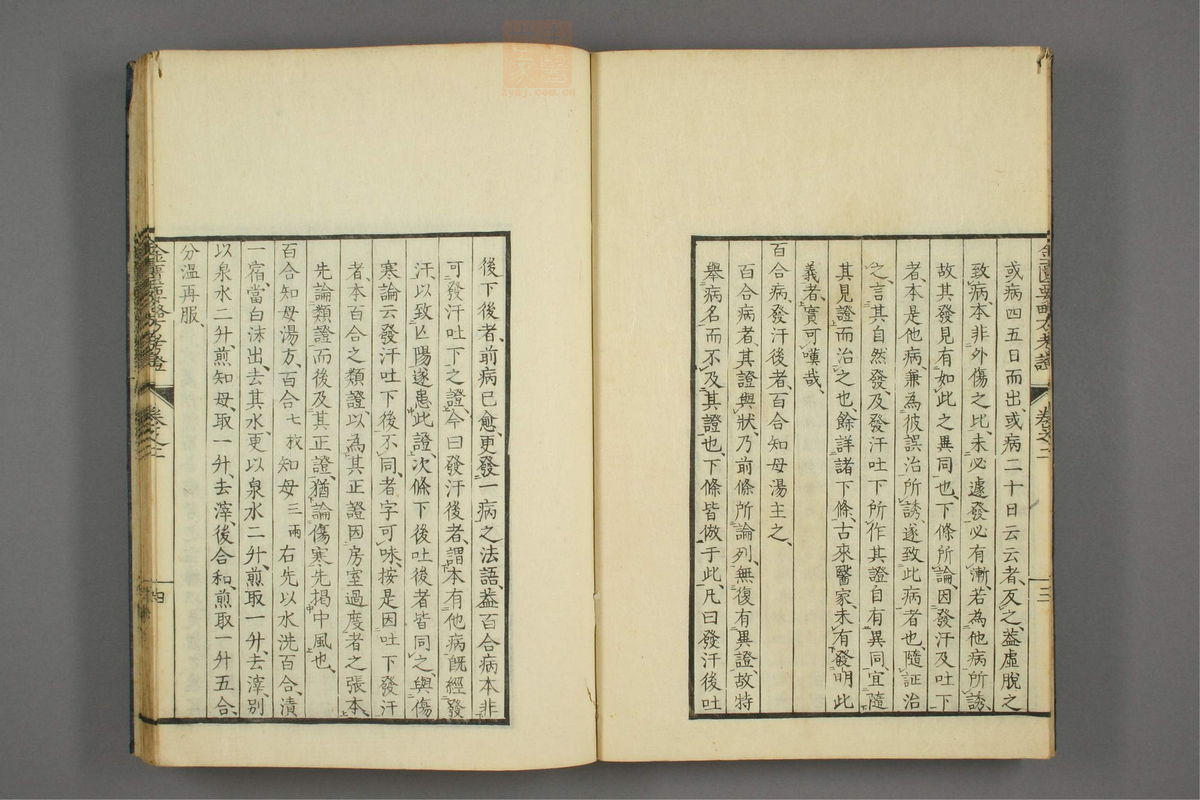 或病四五日而出或病二十日云云者反之蓋虛脫之
致病本非外傷之比未必遽發必有漸若為他病所誘
故其發見有如此之異同也下條所論因發汗及吐下
者本是他病兼為彼誤治所誘遂致此病者也隨証治
之言其自然發及發汗吐下所作其證自有異同宜隨
其見證而治之也餘詳諸下條古來醫家未有發明此
義者實可嘆哉
百合病發汗後者百合知母湯主之
百合病者其證與狀乃前條所論列無復有異證故特
舉病名而不及其證也下條皆倣于此凡曰發汗後吐
卷之二
三
後下後者前病已愈更發一病之法語蓋百合病本非
可發汗吐下之證今曰發汗後者謂本有他病既經發
汗以致亡陽遂患此證次條下後吐後者皆同之與傷
寒論云發汗吐下後不同者字可味按是因吐下發汗
者本百合之類證以為其正證因房室過度者之張本
先論類證而後及其正證猶論傷寒先揭中風也
百合知母湯方百合七枚知母三兩右先以水洗百合漬
一宿當白沫出去其水更以泉水二升煎取一升去滓別
以泉水二升煎知母取一升去滓後合和煎取一升五合
分溫再服
金匱要略方考證
卷之二
四